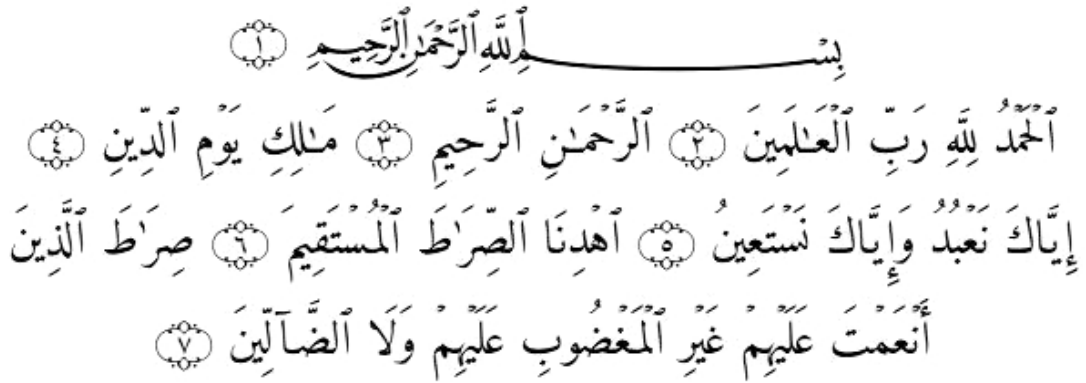 بِسْمِ ٱللَّهِ ٱلرَّحْمَـٰنِ ٱلرَّحِيمِ ١
ٱلْحَمْدُ لِلَّهِ رَبِّ ٱلْعَـٰلَمِينَ ٢ ٱلرَّحْمَـٰنِ ٱلرَّحِيمِ ٣ مَـٰلِكِ يَوْمِ ٱلدِّينِ ٤
إِيَّاكَ نَعْبُدُ وَإِيَّاكَ نَسْتَعِينُ ٥ ٱهْدِنَا ٱلصِّرَٰطَ ٱلْمُسْتَقِيمَ ٦ صِرَٰطَ ٱلَّذِينَ
أَنْعَمْتَ عَلَيْهِمْ غَيْرِ ٱلْمَغْضُوبِ عَلَيْهِمْ وَلَا ٱلضَّآلِّينَ ٧